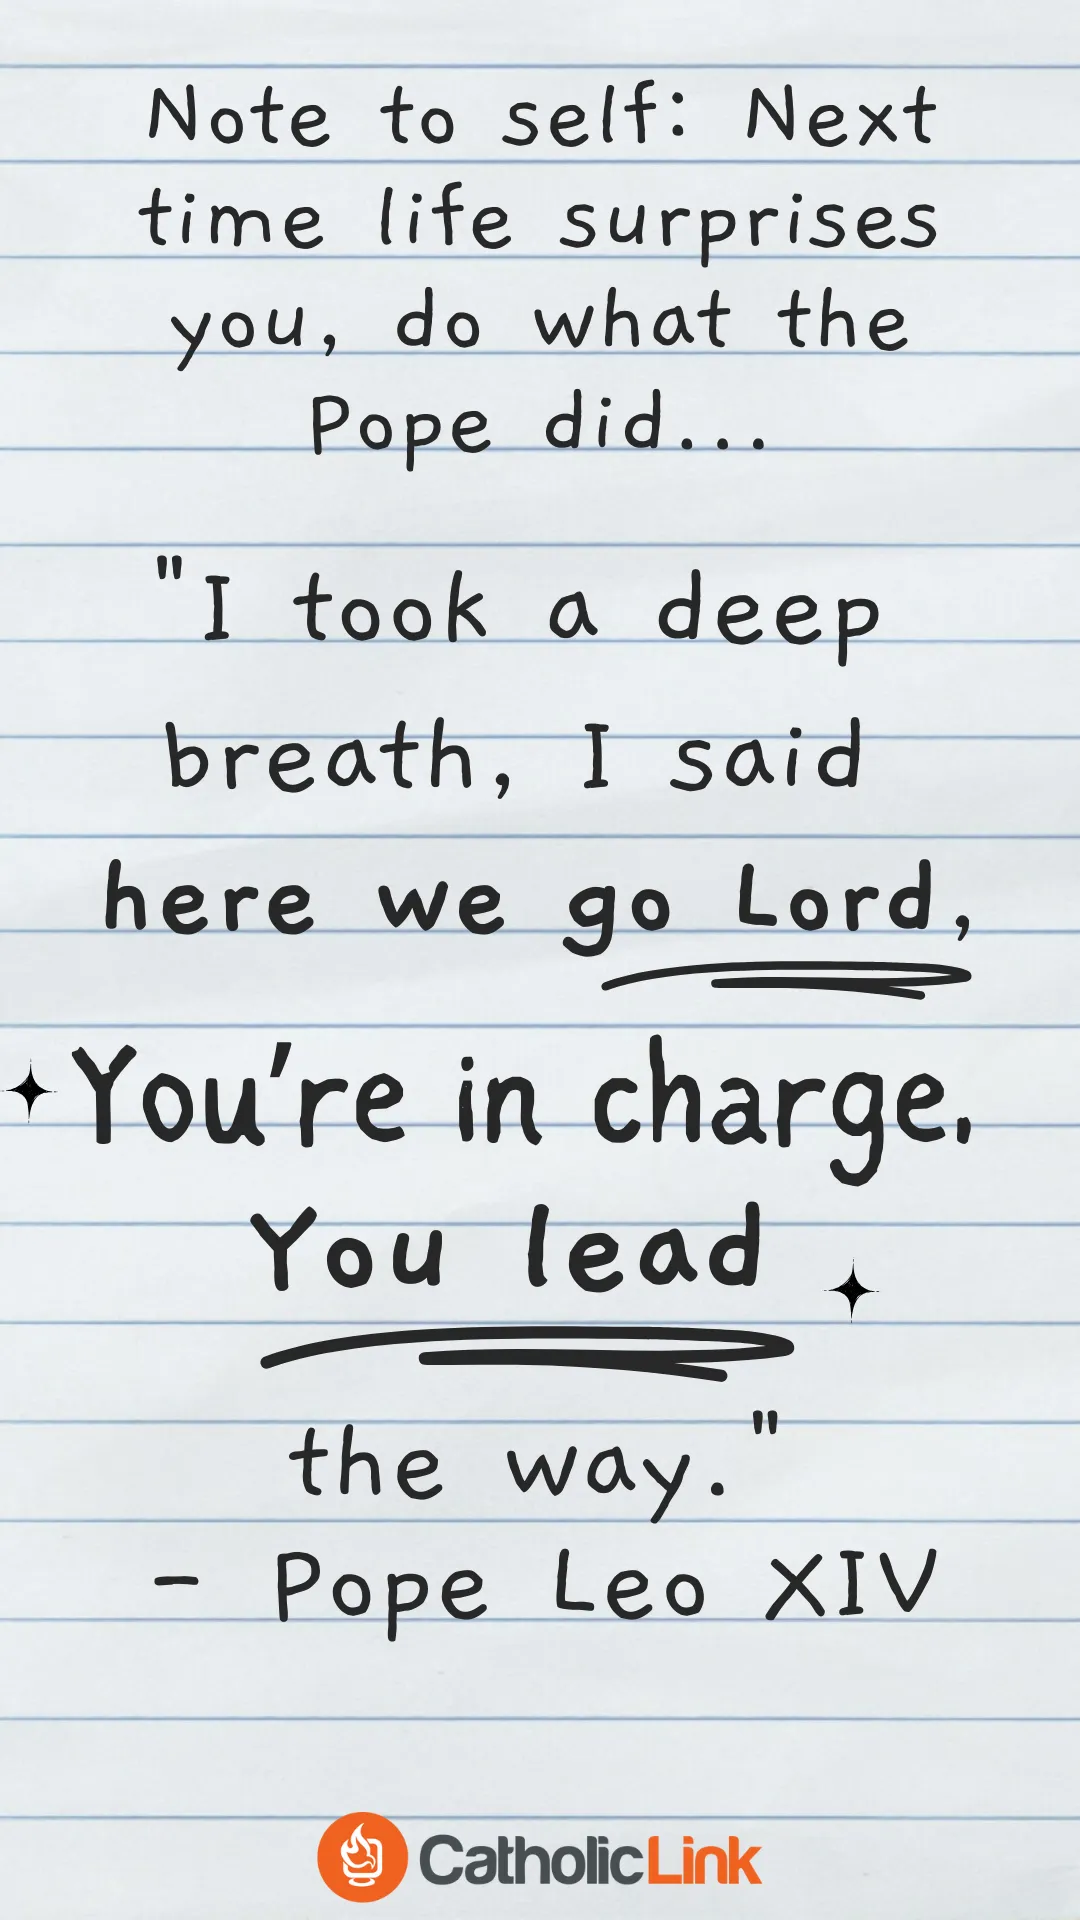 Note to self: Next
time life surprises
you, do what the
Pope did...
"I took a deep
breath, I said
here we go Lord,
You're in charge.
You lead
the way."
- Pope Leo XIV
CatholicLink